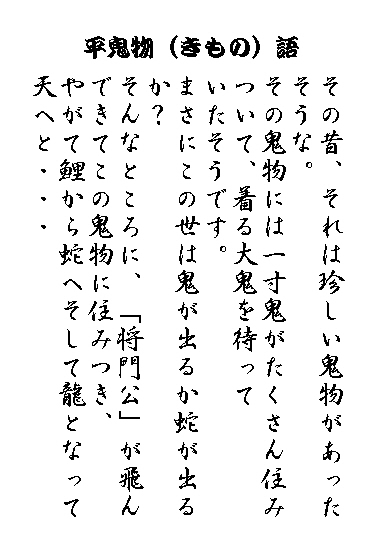 平鬼物（きもの）語
その昔、それは珍しい鬼物があった
そうな。
その鬼物には一寸鬼がたくさん住み
ついて、着る大鬼を待って
いたそうです。
まさにこの世は鬼が出るか蛇が出る
か？
そんなところに、「将門公」が飛ん
できてこの鬼物に住みつき、
やがて鯉から蛇へそして龍となって
天へと・・・